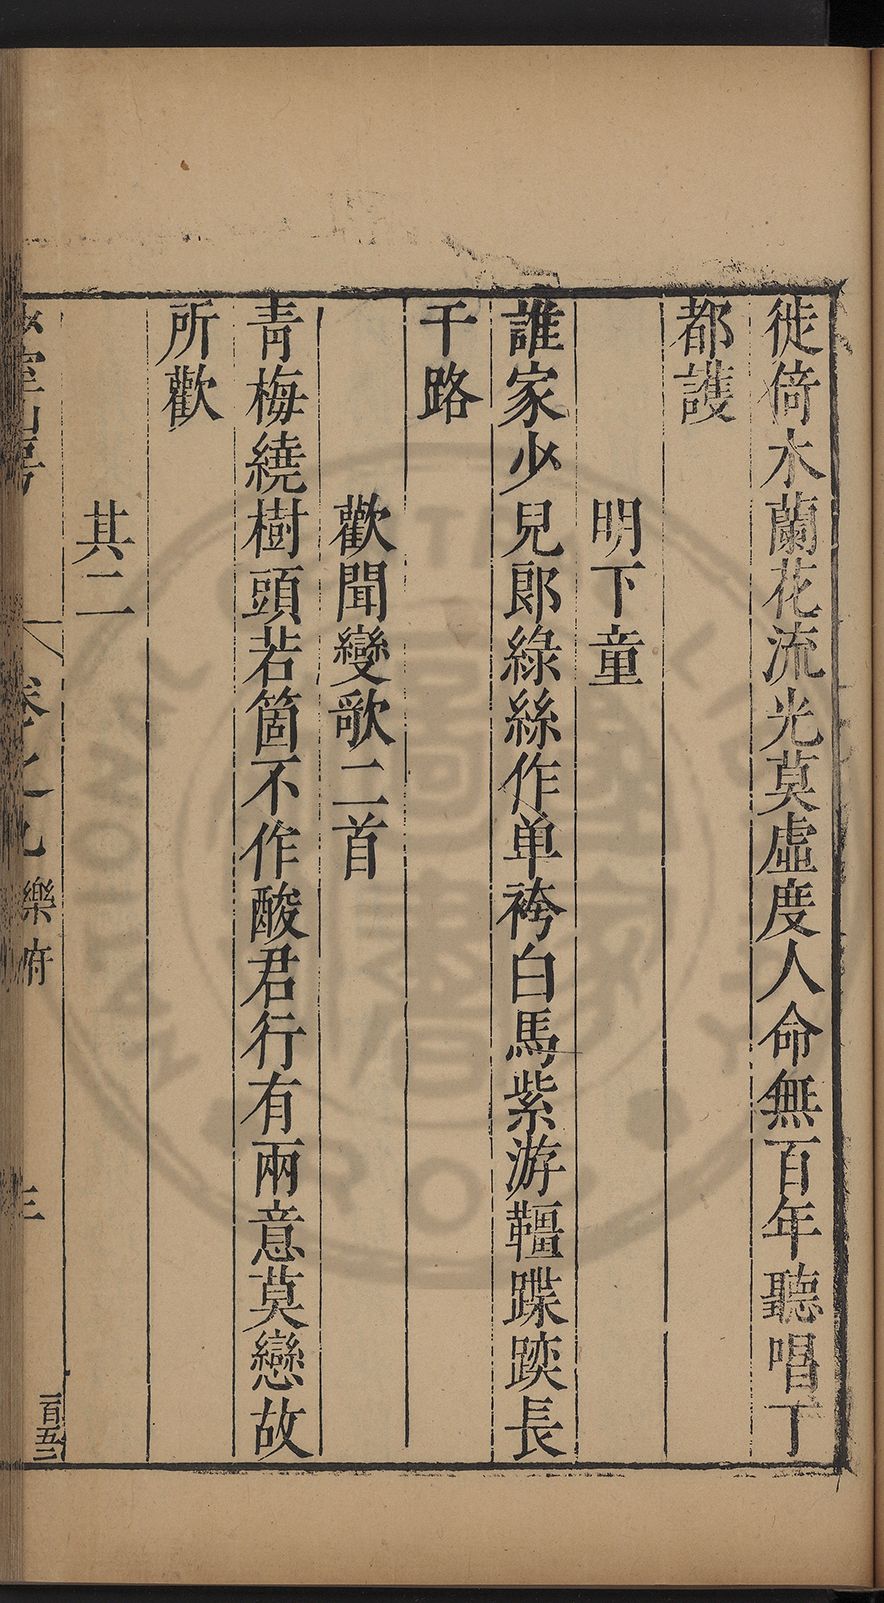 徙倚木蘭花流光莫虛度人命無百年聽唱丁
都護
明下童
誰家少兒郎綠絲作单袴白馬紫游韁蹀踥長
干路
歡聞變歌二首
青梅繞樹頭若箇不作酸君行有兩意莫戀故
所歡
其二
少室山房 卷之九 樂府 三 一百五二